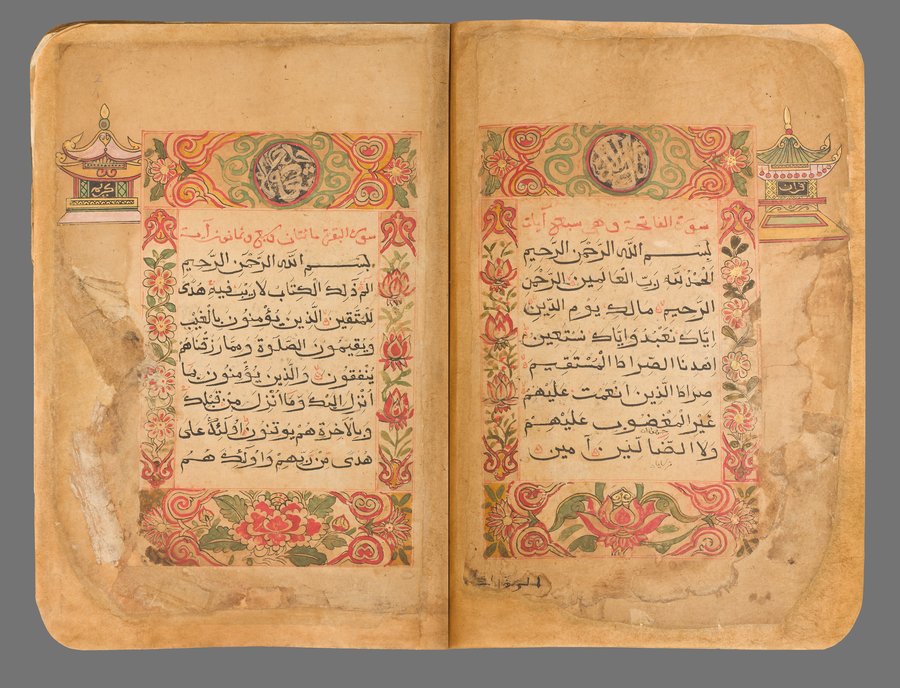 قرآن
سورة الفاتحة وهي سبع آيات
بِسْمِ اللهِ الرَّحْمٰنِ الرَّحِيمِ
الْحَمْدُ لِلّٰهِ رَبِّ الْعَالَمِينَ الرَّحْمٰنِ
الرَّحِيمِ مَالِكِ يَوْمِ الدِّينِ
إِيَّاكَ نَعْبُدُ وَإِيَّاكَ نَسْتَعِينُ
اهْدِنَا الصِّرَاطَ الْمُسْتَقِيمَ
صِرَاطَ الَّذِينَ أَنْعَمْتَ عَلَيْهِمْ
غَيْرِ الْمَغْضُوبِ عَلَيْهِمْ
وَلَا الضَّالِّينَ آمِين
كريم
سورة البقرة مائتان وسبع وثمانون آية
بِسْمِ اللهِ الرَّحْمٰنِ الرَّحِيمِ
الم ذٰلِكَ الْكِتَابُ لَا رَيْبَ فِيهِ هُدًى
لِلْمُتَّقِينَ الَّذِينَ يُؤْمِنُونَ بِالْغَيْبِ
وَيُقِيمُونَ الصَّلٰوةَ وَمِمَّا رَزَقْنَاهُمْ
يُنْفِقُونَ وَالَّذِينَ يُؤْمِنُونَ بِمَا
أُنْزِلَ إِلَيْكَ وَمَا أُنْزِلَ مِنْ قَبْلِكَ
وَبِالْآخِرَةِ هُمْ يُوقِنُونَ أُولٰئِكَ عَلَى
هُدًى مِنْ رَبِّهِمْ وَأُولٰئِكَ هُمُ